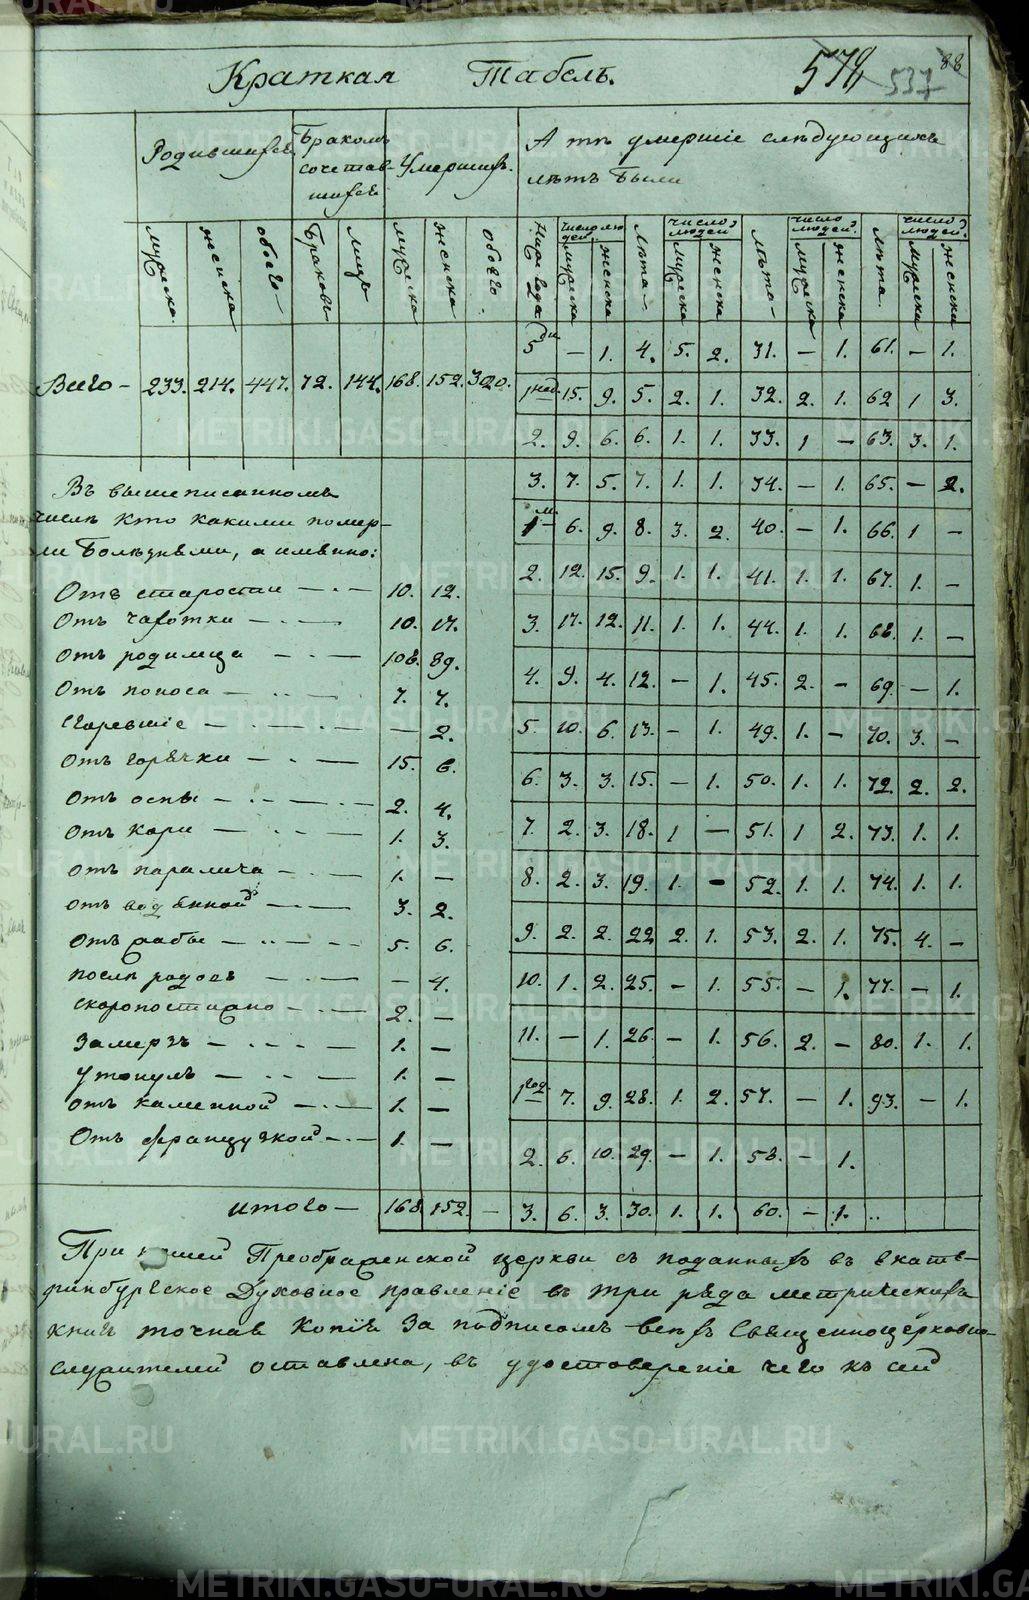 Краткая Табель.
578 537 88
Родившихся
Бракомъ сочетав-шихся
Умершихъ.
А тѣ умершіе слѣдующихъ
лѣтъ были
мужска. женска обоего Браковъ лицъ мужска женска обоего.
Ниже года число людей. мужска женска Лѣта число людей. мужска женска Лѣта число людей. мужска женска Лѣта. число людей. мужска женска
Всего — 233. 214. 447. 72. 144. 168. 152. 320.
5 дн — 1. 4. 5. 2. 31. — 1. 61. — 1.
1 нед. 15. 9. 5. 2. 1. 32. 2. 1. 62 1 3.
2. 9. 6. 6. 1. 1. 33. 1 — 63. 3. 1.
3. 7. 5. 7. 1. 1. 34. — 1. 65. — 2.
1 м. 6. 9. 8. 3. 2. 40. — 1. 66. 1 —
2. 12. 15. 9. 1. 1. 41. 1. 1. 67. 1. —
3. 17. 12. 11. 1. 1. 44. 1. 1. 68. 1. —
4. 9. 4. 12. — 1. 45. 2. — 69. — 1.
5. 10. 6. 13. — 1. 49. 1. — 70. 3. —
6. 3. 3. 15. — 1. 50. 1. 1. 72. 2. 2.
7. 2. 3. 18. 1 — 51. 1 2. 73. 1. 1.
8. 2. 3. 19. 1. — 52. 1. 1. 74. 1. 1.
9. 2. 2. 22 2. 1. 53. 2. 1. 75. 4. —
10. 1. 2. 25. — 1. 55. — 1. 77. — 1.
11. — 1. 26. — 1. 56. 2. — 80. 1. 1.
1 год. 7. 9. 28. 1. 2. 57. — 1. 93. — 1.
2. 6. 10. 29. — 1. 58. — 1.
3. 6. 3. 30. 1. 1. 60. — 1. ..
Въ вышеписанномъ
числѣ кто какими помер-
ли Болѣзнями, а имянно:
Отъ старости — 10. 12.
Отъ чахотки — 10. 17.
Отъ родимца — 108. 89.
Отъ поноса — 7. 7.
Сгоревшіе — — 2.
Отъ горячки — 15. 6.
Отъ оспы — 2. 4.
Отъ кори — 1. 3.
Отъ паралича — 1. —
Отъ водяной — 3. 2.
Отъ жабы — 5. 6.
После родовъ — — 4.
Скоропостижно — 2. —
Замерзъ — 1. —
Утонулъ — 1. —
Отъ каменной — 1. —
Отъ французской — 1. —
итого — 168. 152. —
При нашей Преображенской церкви съ поданныхъ въ Екате-
ринбургское Духовное правленіе въ три ряда метрическихъ
книгъ точная копія за подписомъ всѣхъ Священноцерковно-
служителей оставлена, въ удостовереніе чего къ сей
METRIKI.GASO-URAL.RU